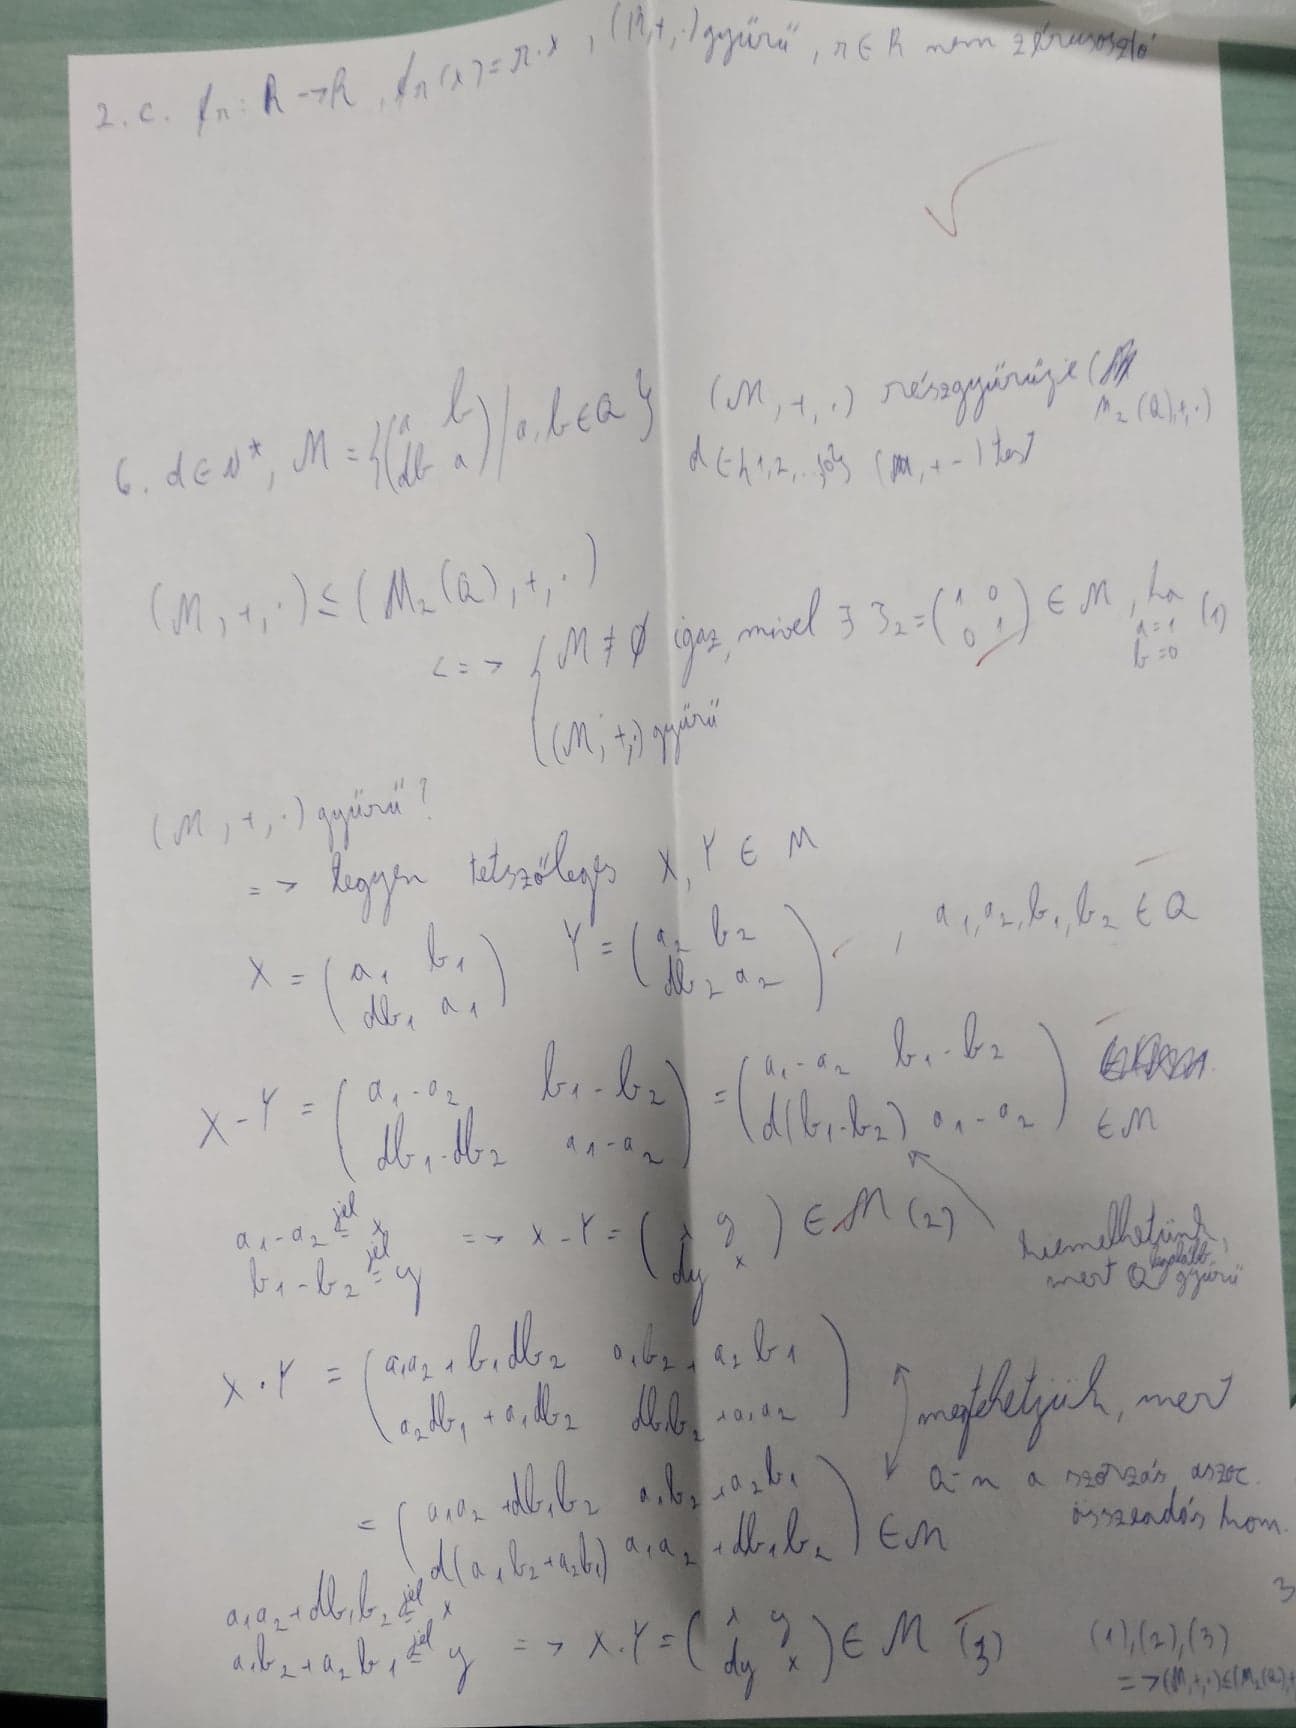 2. c. fr: R → R, fr(x) = r·x, (R,+,·) gyűrű, r ∈ R nem zérusosztó
6. d ∈ N*, M = {(a b / db a) | a, b ∈ Q} (M,+,·) részgyűrűje (M2(Q),+,·)
(M,+,·) test
(M,+,·) ≤ (M2(Q),+,·)
<=> { M ≠ ∅ igaz, mivel ∃ I2 = (1 0 / 0 1) ∈ M, ha a=1 b=0 (1)
(M,+,·) gyűrű
(M,+,·) gyűrű?
=> legyen tetszőleges X, Y ∈ M
X = (a1 b1 / db1 a1) Y = (a2 b2 / db2 a2), a1, a2, b1, b2 ∈ Q
X - Y = (a1-a2 b1-b2 / db1-db2 a1-a2) = (a1-a2 b1-b2 / d(b1-b2) a1-a2) ∈ M
a1-a2 jel= x => X-Y = (x y / dy x) ∈ M (2)
b1-b2 jel= y
kiemelhetünk,
mert Q legalább gyűrű
X·Y = (a1a2+b1db2 a1b2+a2b1 / a2db1+a1db2 db1b2+a1a2)
megtehetjük, mert
Q-n a szorzás aszoc.
összeadás kom.
= (a1a2+db1b2 a1b2+a2b1 / d(a1b2+a2b1) a1a2+db1b2) ∈ M
a1a2+db1b2 jel= x
a1b2+a2b1 jel= y => X·Y = (x y / dy x) ∈ M (3)
(1),(2),(3)
=> (M,+,·) ≤ (M2(Q),+